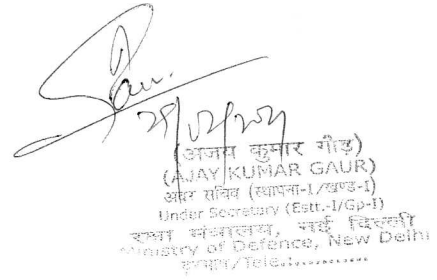 (अजय कुमार गौड़)
(AJAY KUMAR GAUR)
अवर सचिव (स्थापना-I/खण्ड-I)
Under Secretary (Estt.-I/Gp-I)
रक्षा मंत्रालय, नई दिल्ली
Ministry of Defence, New Delhi
दूरभाष/Tele.:...........